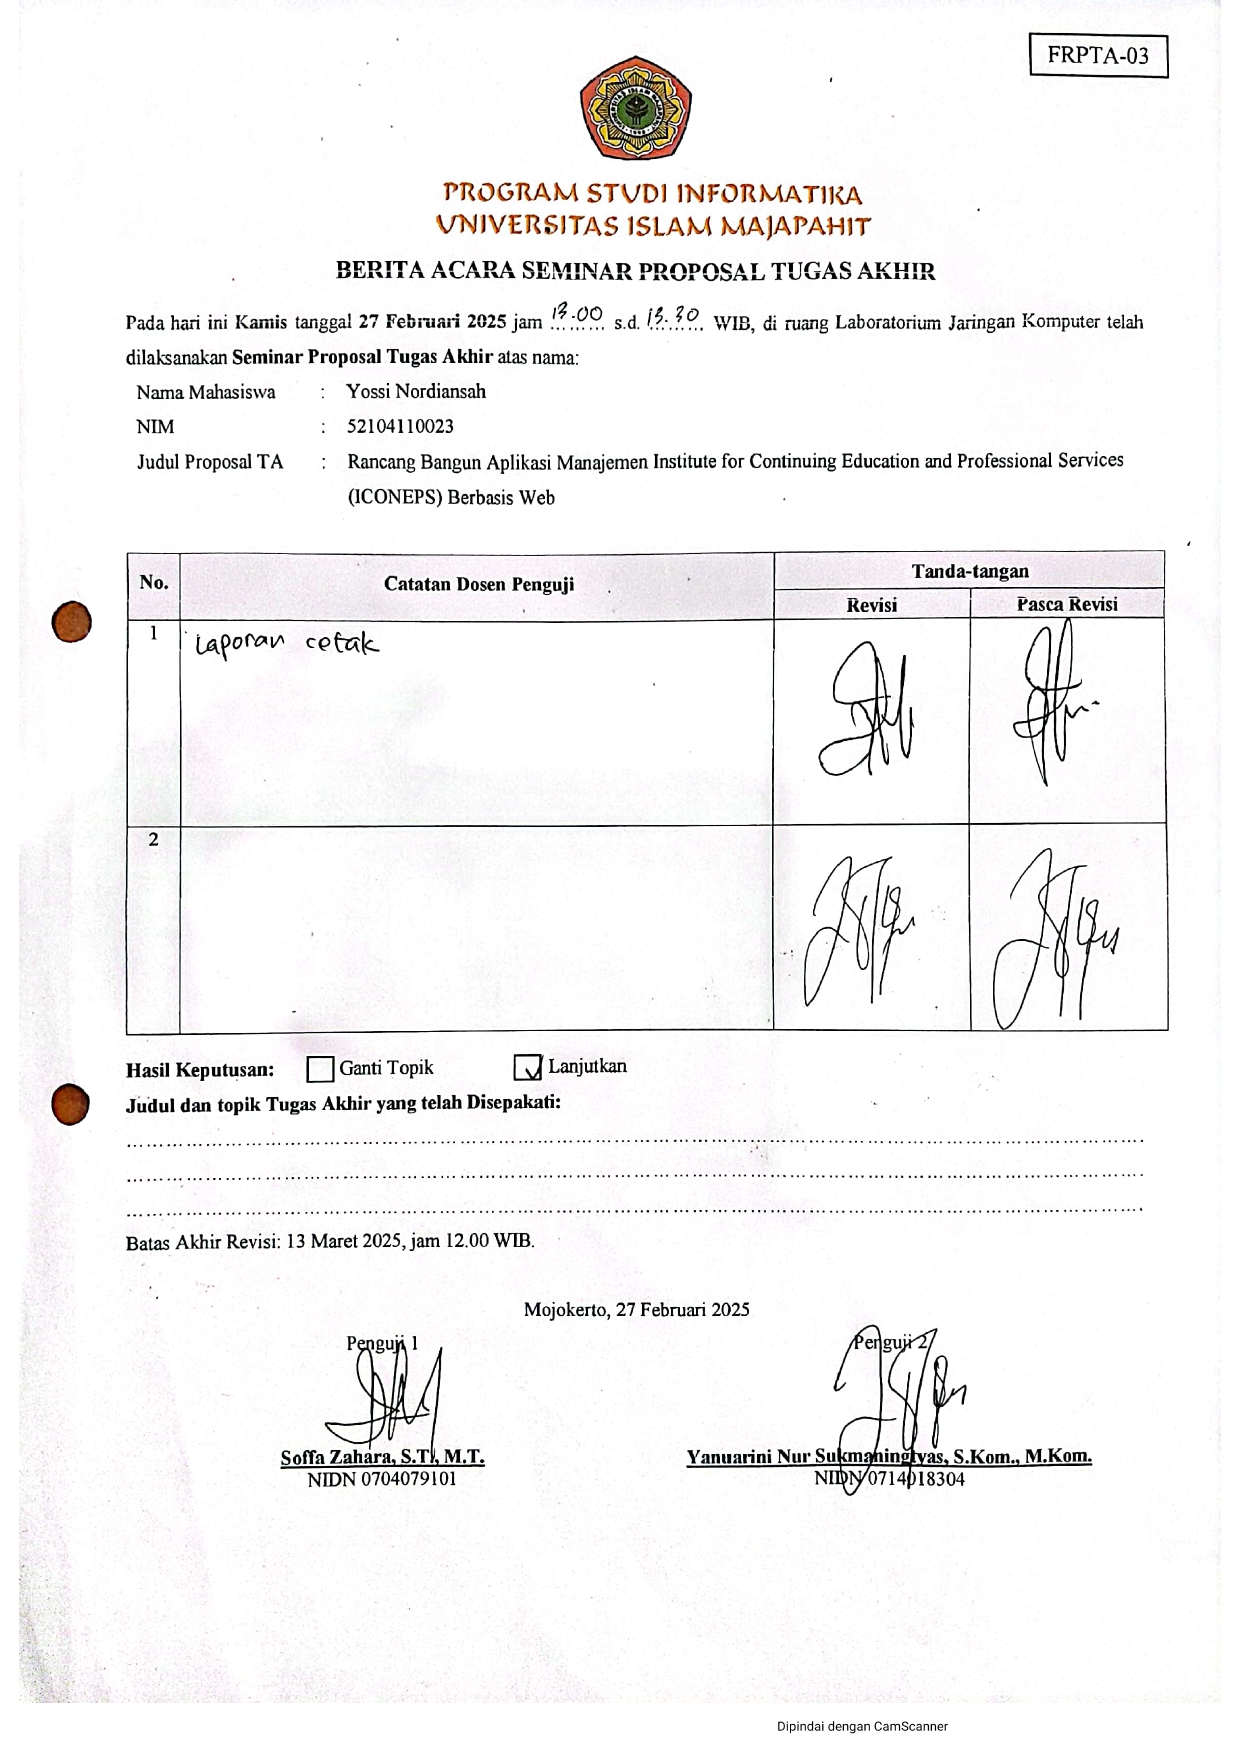 FRPTA-03
PROGRAM STUDI INFORMATIKA
UNIVERSITAS ISLAM MAJAPAHIT
BERITA ACARA SEMINAR PROPOSAL TUGAS AKHIR
Pada hari ini Kamis tanggal 27 Februari 2025 jam 13.00 s.d. 13.30 WIB, di ruang Laboratorium Jaringan Komputer telah
dilaksanakan Seminar Proposal Tugas Akhir atas nama:
Nama Mahasiswa : Yossi Nordiansah
NIM : 52104110023
Judul Proposal TA : Rancang Bangun Aplikasi Manajemen Institute for Continuing Education and Professional Services
(ICONEPS) Berbasis Web
No. Catatan Dosen Penguji Tanda-tangan
Revisi Pasca Revisi
1 Laporan cetak
2
Hasil Keputusan: Ganti Topik Lanjutkan
Judul dan topik Tugas Akhir yang telah Disepakati:
Batas Akhir Revisi: 13 Maret 2025, jam 12.00 WIB.
Mojokerto, 27 Februari 2025
Penguji 1 Penguji 2
Soffa Zahara, S.T., M.T. Yanuarini Nur Sukmaningtyas, S.Kom., M.Kom.
NIDN 0704079101 NIDN 0714018304
Dipindai dengan CamScanner